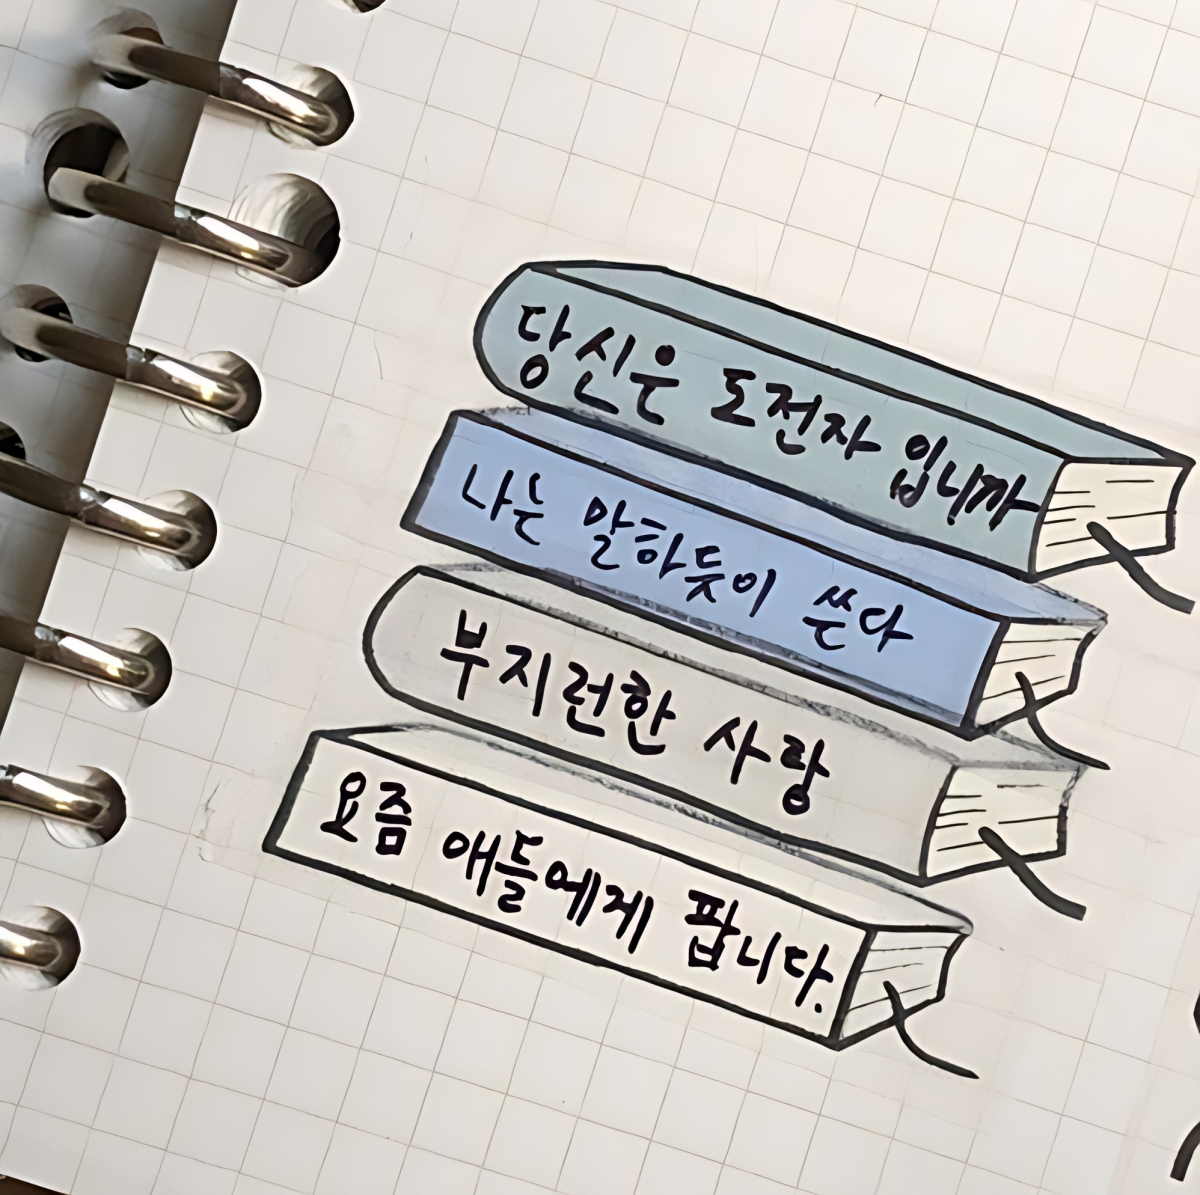 당신은 도전자 입니까
나는 말하듯이 쓴다
부지런한 사랑
요즘 애들에게 팝니다.